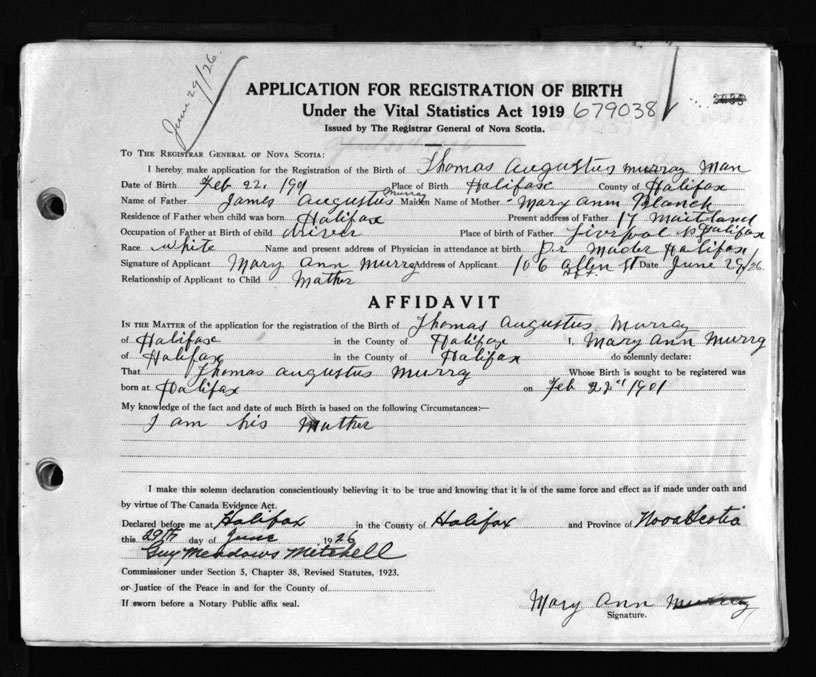 June 29/26.
APPLICATION FOR REGISTRATION OF BIRTH
Under the Vital Statistics Act 1919 679038
Issued by The Registrar General of Nova Scotia.
TO THE REGISTRAR GENERAL OF NOVA SCOTIA:
I hereby make application for the Registration of the Birth of Thomas Augustus Murray
Date of Birth Feb 22, 1901 Place of Birth Halifax County of Halifax
Name of Father James Augustus Murray Maiden Name of Mother Mary Ann Blanck
Residence of Father when child was born Halifax Present address of Father 17 Maitland
Occupation of Father at Birth of child driver Place of birth of Father Liverpol Halifax
Race white Name and present address of Physician in attendance at birth Dr Mader Halifax
Signature of Applicant Mary Ann Murry Address of Applicant 106 Allen St Date June 29/26.
Relationship of Applicant to Child Mather
AFFIDAVIT
IN THE MATTER of the application for the registration of the Birth of Thomas Augustus Murray
of Halifax in the County of Halifax I, Mary Ann Murry
of Halifax in the County of Halifax do solemnly declare:
That Thomas Augustus Murry Whose Birth is sought to be registered was
born at Halifax on Feb 22nd 1901
My knowledge of the fact and date of such Birth is based on the following Circumstances:—
I am his Mather
I make this solemn declaration conscientiously believing it to be true and knowing that it is of the same force and effect as if made under oath and
by virtue of The Canada Evidence Act.
Declared before me at Halifax in the County of Halifax and Province of Nova Scotia
this 29th day of June 1926
Guy Meadows Mitchell
Commissioner under Section 5, Chapter 38, Revised Statutes, 1923.
or Justice of the Peace in and for the County of
If sworn before a Notary Public affix seal.
Mary Ann Murray
Signature.